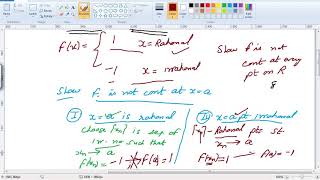 f(x) = { 1 x = Rational
-1 x = irrational
Show f is not
cont at every
pt on R
Show f is not cont at x=a
I x = a is rational
choose {xn} is seq of
ir. no such that
xn → a
f(xn) = -1 ↛ f(a) = 1
II x = a pt irrational
{xn} - Rational pts st
xn → a
f(xn) = 1 f(a) = -1